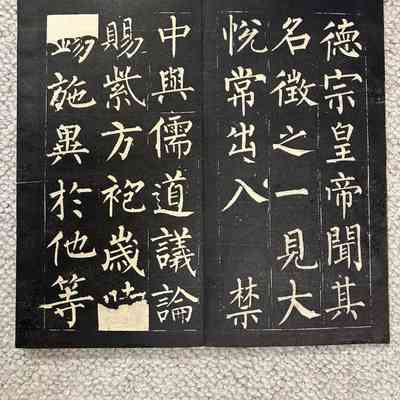 德宗皇帝聞其
名徵之一見大
悅常出入 禁
中與儒道議論
賜紫方袍歲時
錫施異於他等